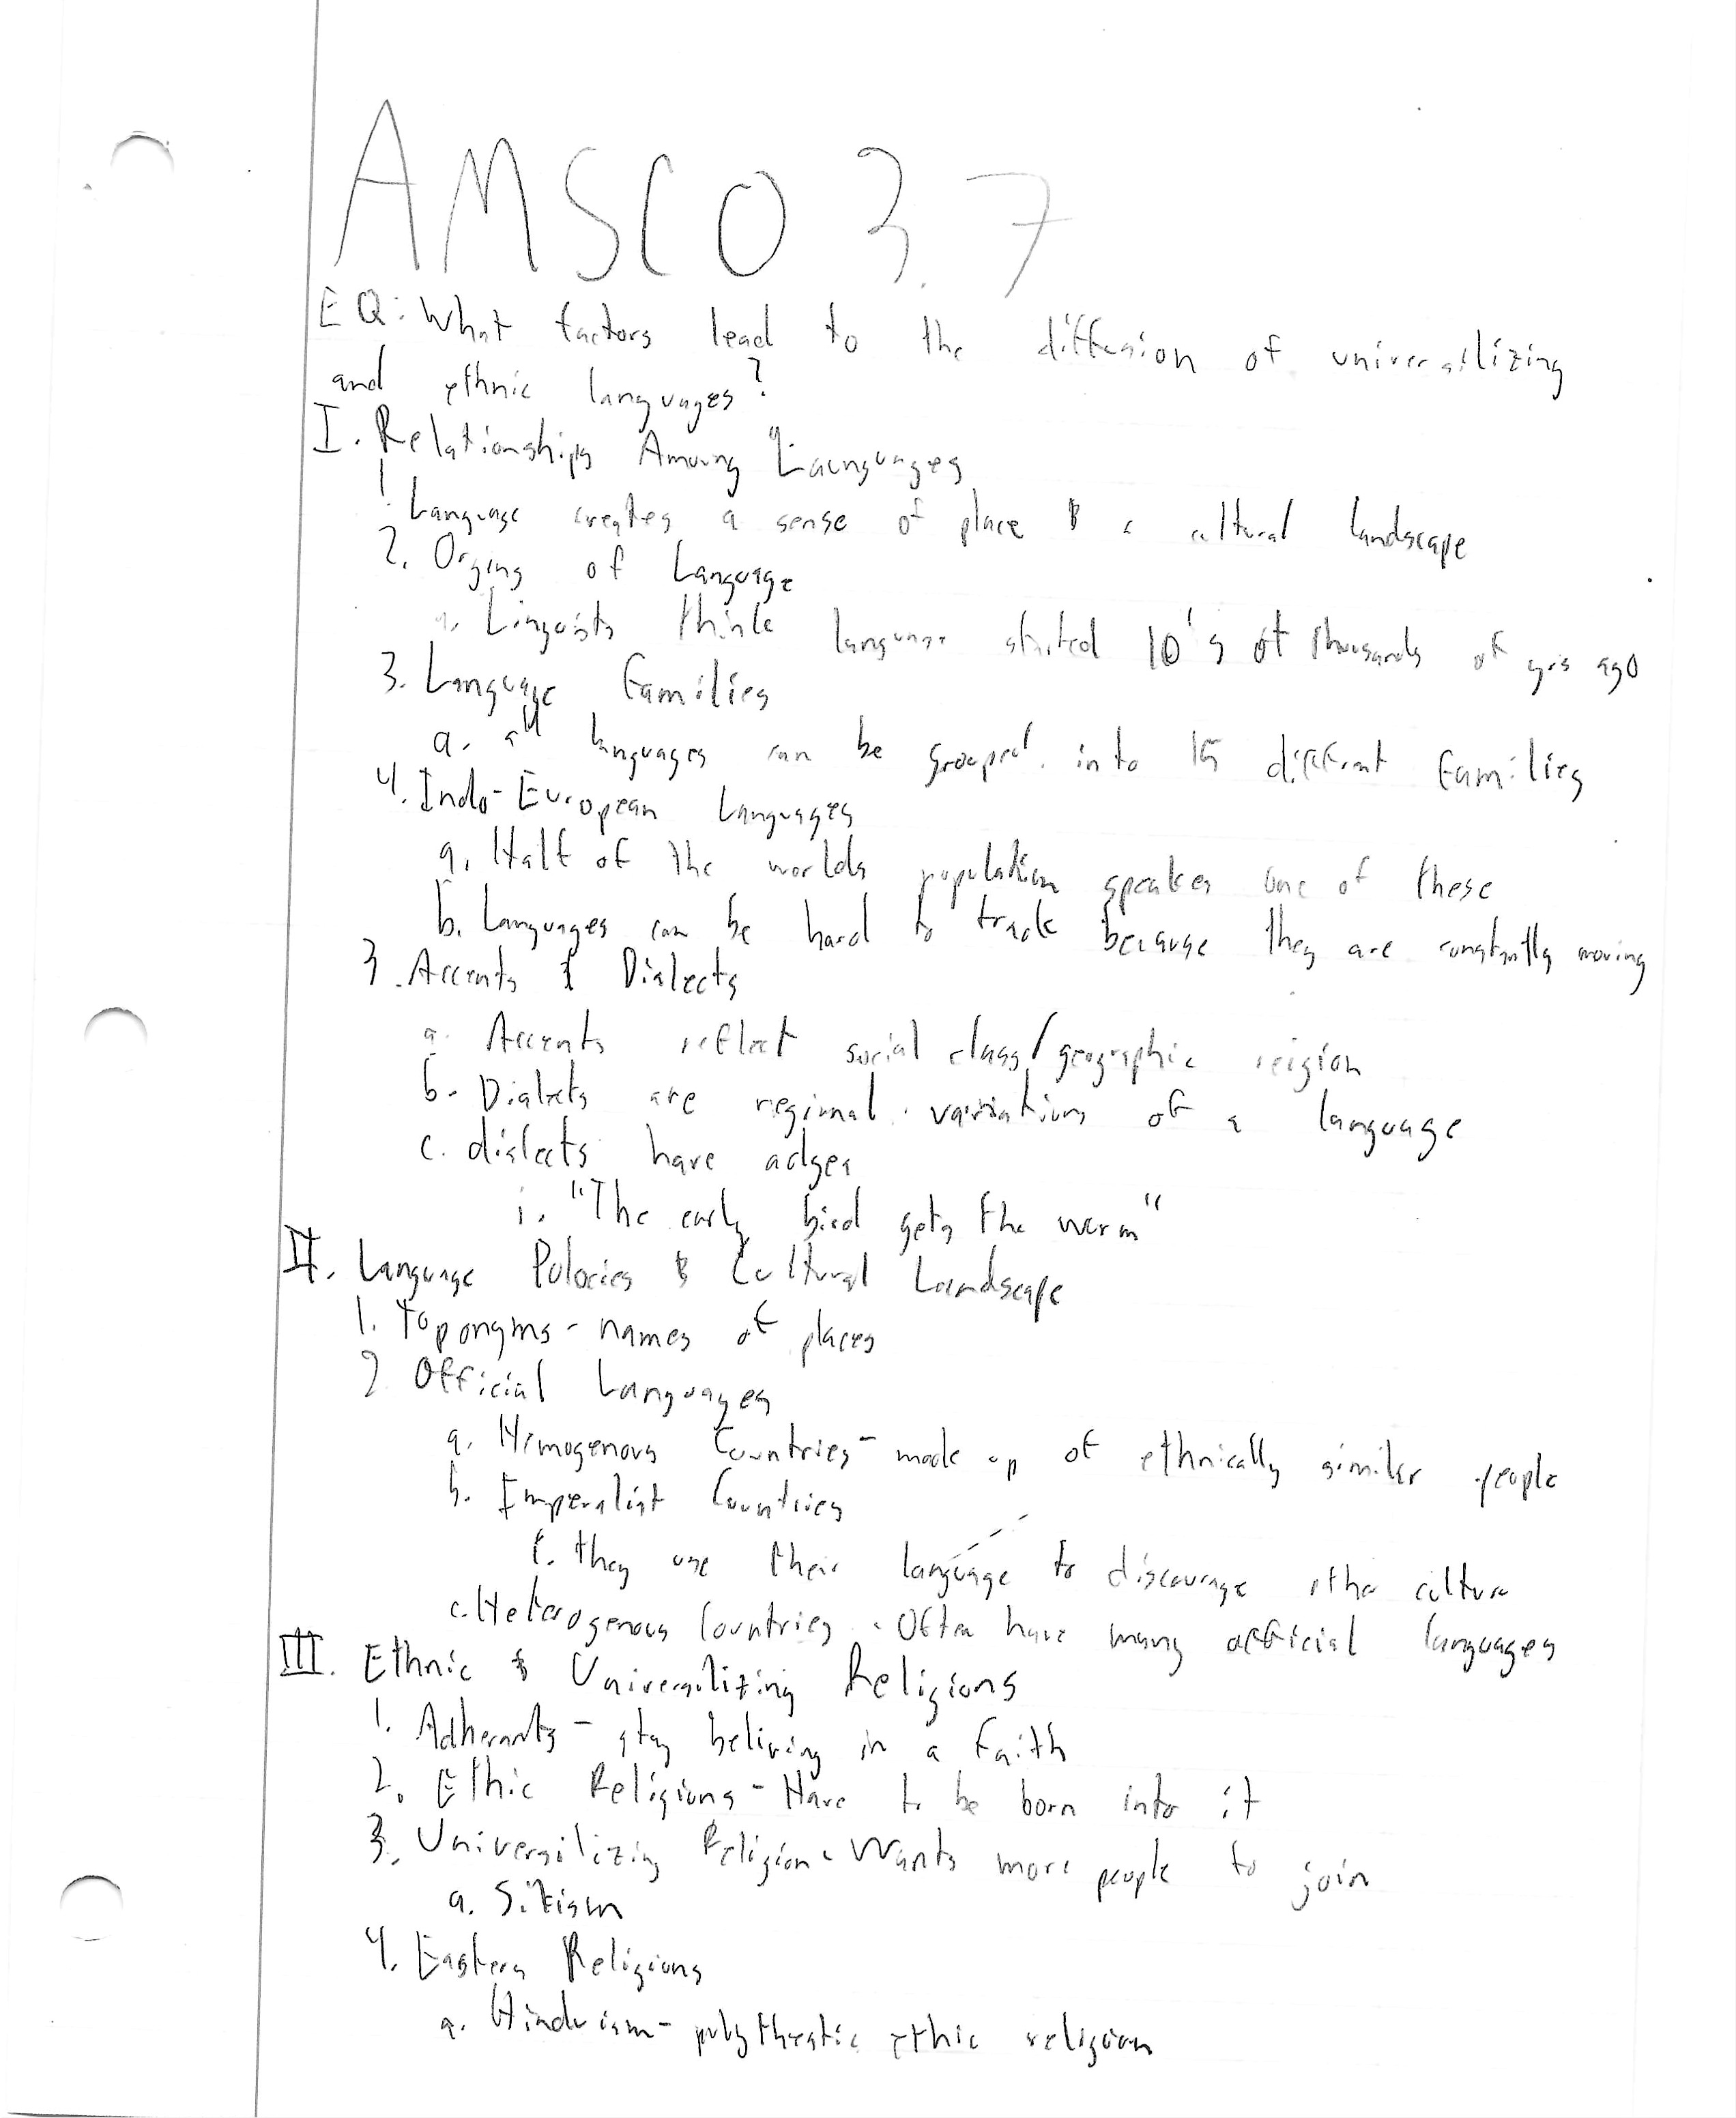 AMSCO 3.7
EQ: What factors lead to the diffusion of universilizing
and ethnic languages?
I. Relationships Among Launguages
1. Language creates a sense of place & a cultural landscape
2. Orgins of Language
a. Linguists think language started 10's of thousands of yrs ago
3. Language Families
a. all languages can be grouped into 15 different families
4. Indo-European Languages
a. Half of the worlds population speakes one of these
b. Languages can be hard to track because they are constantly moving
3. Accents & Dialects
a. Accents reflect social class/geographic reigion
b. Dialects are regional variations of a language
c. dialects have adges
i. "The early bird gets the worm"
II. Language Polocies & Cultural Landscape
1. Toponyms - names of places
2 Official Languages
a. Homogenous Countries - made up of ethnically similar people
b. Imperalist Countries
i. they use their language to discourage other culture
c. Heterogenous Countries - Often have many official languages
III. Ethnic & Universilizing Religions
1. Adherants - stay beliving in a faith
2. Ethic Religions - Have to be born into it
3. Universilizing Religion - Wants more people to join
a. Sikism
4. Eastern Religions
a. Hinduism - polytheatic ethic religion